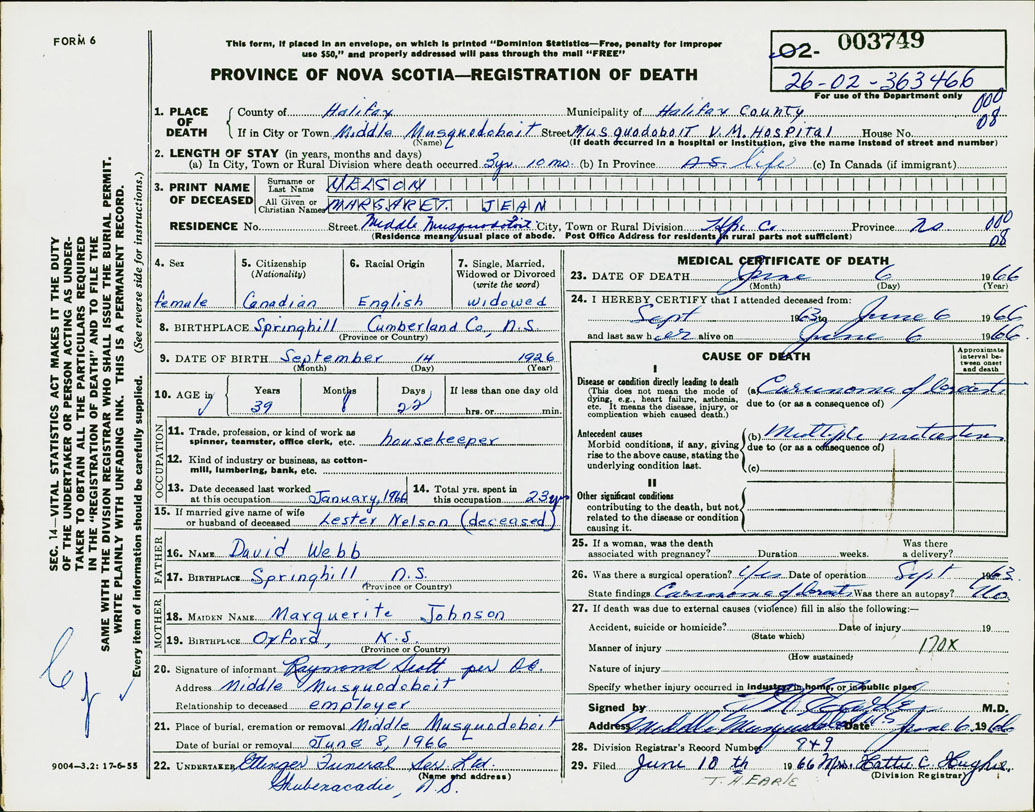 FORM 6
This form, if placed in an envelope, on which is printed "Dominion Statistics—Free, penalty for improper
use $50," and properly addressed will pass through the mail "FREE"
PROVINCE OF NOVA SCOTIA—REGISTRATION OF DEATH
02- 003749
26-02-363466
For use of the Department only
1. PLACE OF DEATH
County of Halifax Municipality of Halifax County 000
If in City or Town Middle Musquodoboit Street Musquodoboit V.M. Hospital House No. 08
(Name) (If death occurred in a hospital or institution, give the name instead of street and number)
2. LENGTH OF STAY (in years, months and days)
(a) In City, Town or Rural Division where death occurred 3yr 10 mo. (b) In Province as life (c) In Canada (if immigrant)
3. PRINT NAME OF DECEASED
Surname or Last Name NELSON
All Given or Christian Names MARGARET JEAN
RESIDENCE No. Street Middle Musquodoboit City, Town or Rural Division Hfx. Co Province NS 000
(Residence means usual place of abode. Post Office Address for residents in rural parts not sufficient) 08
4. Sex female
5. Citizenship (Nationality) Canadian
6. Racial Origin English
7. Single, Married, Widowed or Divorced (write the word) widowed
8. BIRTHPLACE Springhill Cumberland Co, N.S.
(Province or Country)
9. DATE OF BIRTH September 14 1926
(Month) (Day) (Year)
10. AGE in Years 39 Months 8 Days 22 If less than one day old hrs. or min.
OCCUPATION
11. Trade, profession, or kind of work as spinner, teamster, office clerk, etc. housekeeper
12. Kind of industry or business, as cotton-mill, lumbering, bank, etc.
13. Date deceased last worked at this occupation January, 1966
14. Total yrs. spent in this occupation 23 yrs
15. If married give name of wife or husband of deceased Lester Nelson (deceased)
FATHER
16. NAME David Webb
17. BIRTHPLACE Springhill N.S.
(Province or Country)
MOTHER
18. MAIDEN NAME Marguerite Johnson
19. BIRTHPLACE Oxford, N.S.
(Province or Country)
20. Signature of informant Raymond Scott per
Address Middle Musquodoboit
Relationship to deceased employer
21. Place of burial, cremation or removal Middle Musquodoboit
Date of burial or removal June 8, 1966
22. UNDERTAKER Ettinger Funeral Ser. Ltd.
(Name and address)
Shubenacadie, N.S.
MEDICAL CERTIFICATE OF DEATH
23. DATE OF DEATH June 6 1966
(Month) (Day) (Year)
24. I HEREBY CERTIFY that I attended deceased from:
Sept 1963 to June 6 1966
and last saw her alive on June 6 1966
CAUSE OF DEATH
Approximate interval between onset and death
I
Disease or condition directly leading to death
(This does not mean the mode of dying, e.g., heart failure, asthenia, etc. It means the disease, injury, or complication which caused death.)
(a) Carcinoma of breasts
due to (or as a consequence of)
Antecedent causes
Morbid conditions, if any, giving rise to the above cause, stating the underlying condition last.
(b) Multiple metastases
due to (or as a consequence of)
(c)
II
Other significant conditions
contributing to the death, but not related to the disease or condition causing it.
25. If a woman, was the death associated with pregnancy? Duration weeks. Was there a delivery?
26. Was there a surgical operation? Yes Date of operation Sept 1963
State findings Carcinoma of breasts Was there an autopsy? No
27. If death was due to external causes (violence) fill in also the following:—
Accident, suicide or homicide? Date of injury 19
(State which)
Manner of injury 170X
(How sustained)
Nature of injury
Specify whether injury occurred in industry, in home, or in public place
Signed by M.D.
Address Middle Musquodoboit NS Date June 6 1966
28. Division Registrar's Record Number 949
29. Filed June 10th 1966 Mrs. Hattie C. Hughes
(Division Registrar)
T. H EARLE
SEC. 14—VITAL STATISTICS ACT MAKES IT THE DUTY
OF THE UNDERTAKER OR PERSON ACTING AS UNDER-
TAKER TO OBTAIN ALL THE PARTICULARS REQUIRED
IN THE "REGISTRATION OF DEATH" AND TO FILE THE
SAME WITH THE DIVISION REGISTRAR WHO SHALL ISSUE THE BURIAL PERMIT.
WRITE PLAINLY WITH UNFADING INK. THIS IS A PERMANENT RECORD.
Every item of information should be carefully supplied. (See reverse side for instructions.)
9004—3.2: 17-6-55